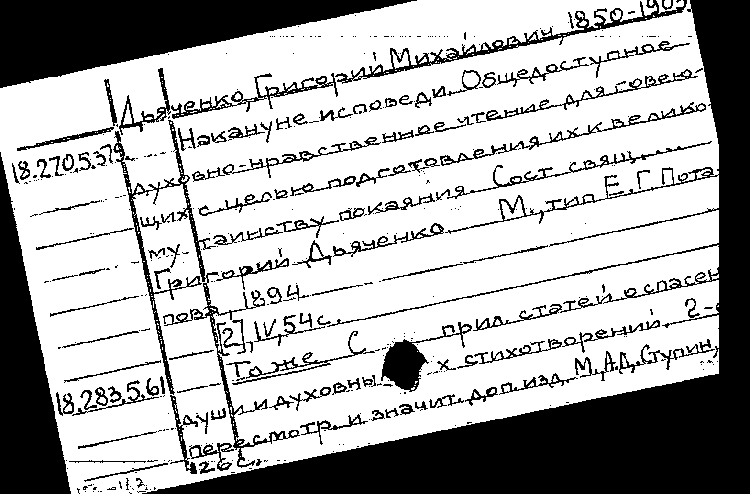 Дьяченко, Григорий Михайлович, 1850-1903.
Накануне исповеди. Общедоступное
18.270.5.379
духовно-нравственное чтение для говею-
щих с целью подготовления их к велико-
му таинству покаяния. Сост. свящ....
Григорий Дьяченко. М., тип. Е. Г. Пота-
пова, 1894.
[2], IV, 54 с.
То же. С прил. статей о спасен
18.283.5.61
души и духовных стихотворений. 2-е
пересмотр. и значит. доп. изд. М., А.Д. Ступин,
126 с.